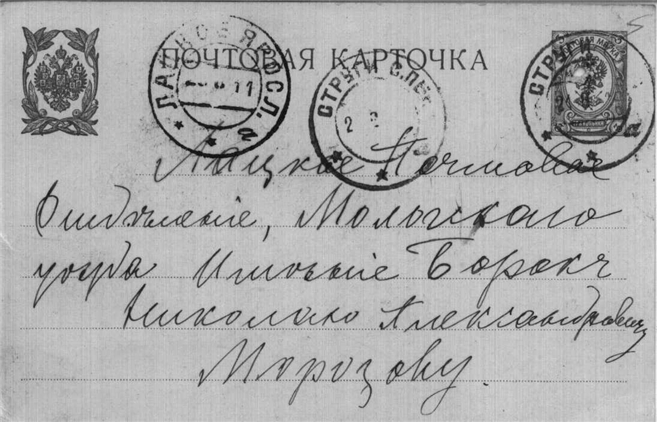 ПОЧТОВАЯ КАРТОЧКА
ЛАЦКОЕ ЯРОСЛ.
11
СТРУГИ
2
СТРУГИ
Лацкое Почтовое
Отдѣленіе, Мологскаго
уѣзда Имѣніе Борокъ
Николаю Александровичу
Морозову.